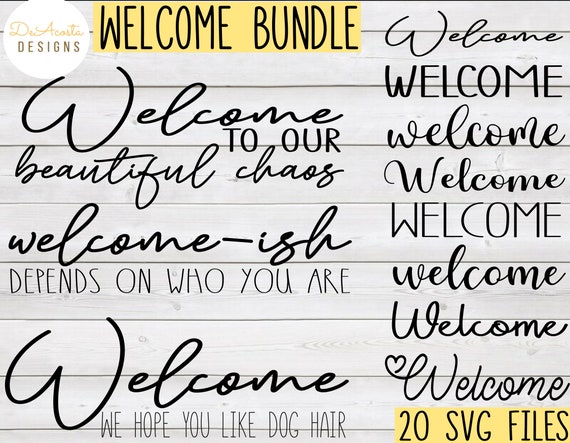 DeAcosta
DESIGNS
WELCOME BUNDLE
Welcome
TO OUR
beautiful chaos
welcome-ish
DEPENDS ON WHO YOU ARE
Welcome
WE HOPE YOU LIKE DOG HAIR
Welcome
WELCOME
welcome
Welcome
WELCOME
welcome
Welcome
Welcome
20 SVG FILES